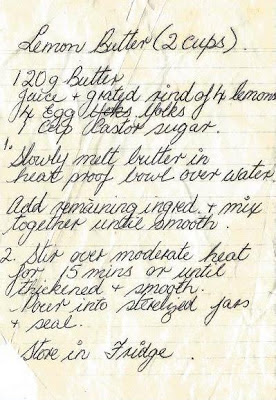 Lemon Butter (2 cups).
120g Butter
Juice + grated rind of 4 lemons
4 Egg Yolks
1 Cup Castor sugar.
1. Slowly melt butter in
heat proof bowl over water
Add remaining ingred. + mix
together until smooth.
2. Stir over moderate heat
for 15 mins or until
thickened + smooth.
Pour into sterelized jars
+ seal.
Store in Fridge.